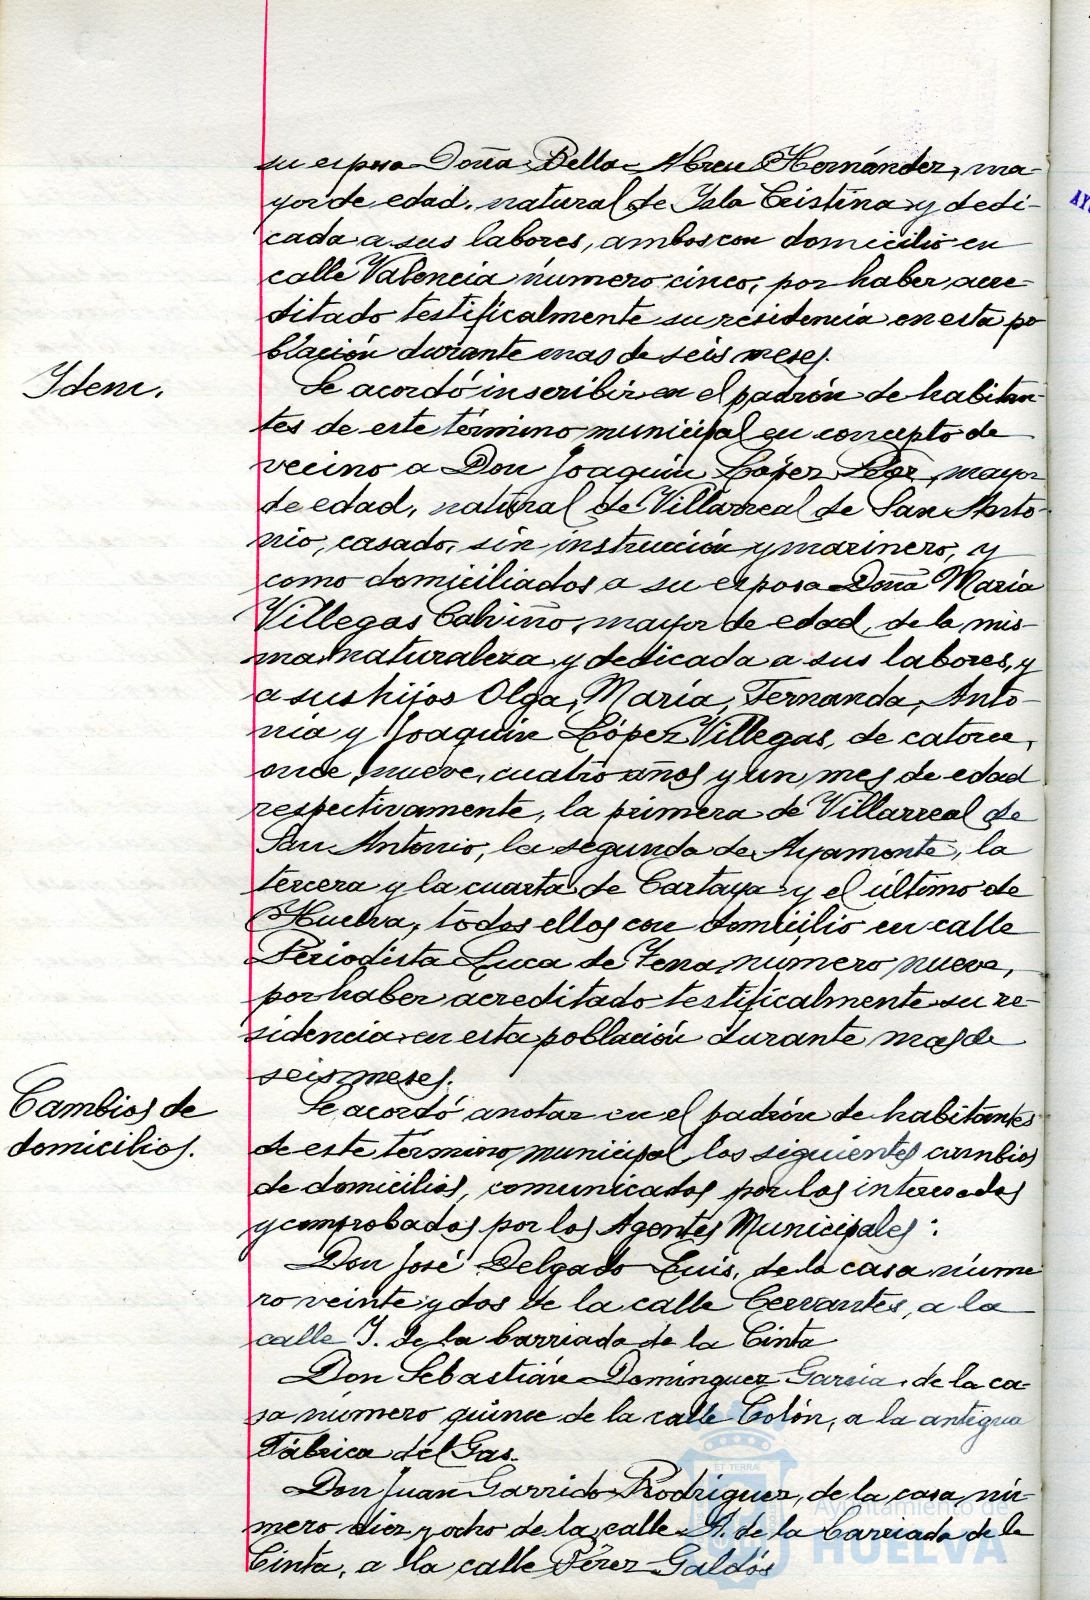 su esposa Doña Bella Abreu Hernández, ma-
yor de edad, natural de Isla Cristina y dedi-
cada a sus labores, ambos con domicilio en
calle Valencia número cinco, por haber acre-
ditado testificalmente su residencia en esta po
blación durante mas de seis meses.
Idem.
Se acordó inscribir en el padrón de habitan-
tes de este término municipal en concepto de
vecino a Don Joaquín López, mayor
de edad, natural de Villarreal de San Anto-
nio, casado, sin instrucción y marinero, y
como domiciliados a su esposa Doña María
Villegas Calviño, mayor de edad, de la mis-
ma naturaleza y dedicada a sus labores, y
a sus hijos Olga, María, Fernanda, Anto-
nia y Joaquín López Villegas, de catorce,
once, nueve, cuatro años y un mes de edad
respectivamente, la primera de Villarreal de
San Antonio, la segunda de Ayamonte, la
tercera y la cuarta de Cartaya y el último de
Huelva, todos ellos con domicilio en calle
Periodista Luca de Tena, numero nueve,
por haber acreditado testificalmente su re-
sidencia en esta población durante mas de
seis meses.
Cambios de
domicilios.
Se acordó anotar en el padrón de habitantes
de este término municipal los siguientes cambios
de domicilios, comunicados por los interesados
y comprobados por los Agentes Municipales:
Don José Delgado Luis, de la casa núme
ro veinte y dos de la calle Cervantes, a la
calle J. de la barriada de la Cinta
Don Sebastián Domínguez García, de la ca-
sa número quince de la calle Colón, a la antigua
Fábrica del Gas.
Don Juan Garrido Rodríguez, de la casa nú-
mero diez y ocho de la calle de la barriada de la
Cinta, a la calle Pérez Galdós
AY
ET TERRÆ
Ayuntamiento de
HUELVA